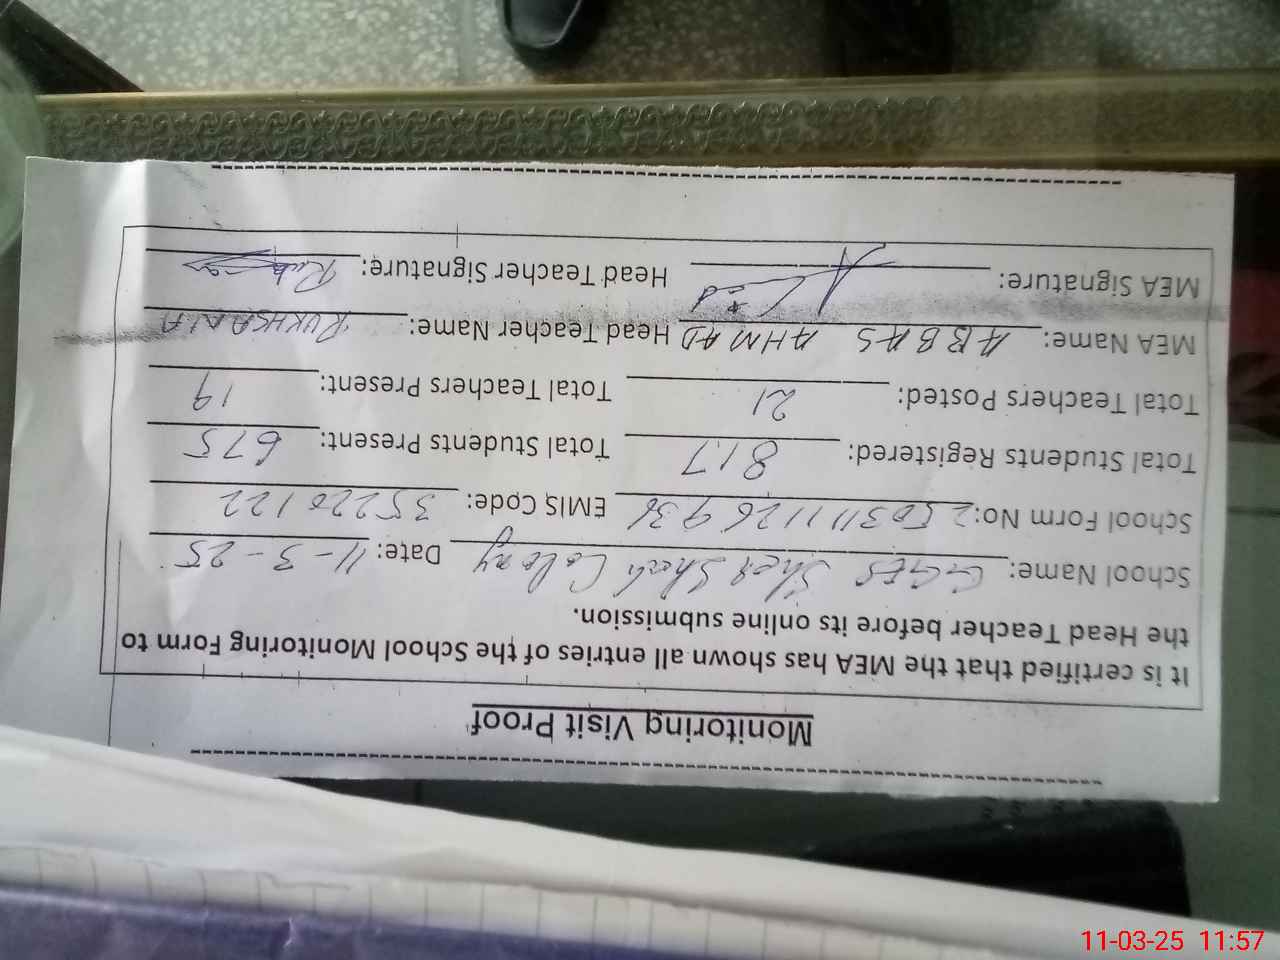 Monitoring Visit Proof
It is certified that the MEA has shown all entries of the School Monitoring Form to
the Head Teacher before its online submission.
School Name: GGES Sher Shah Colony Date: 11-3-25
School Form No: 2503111126936 EMIS Code: 35220122
Total Students Registered: 817 Total Students Present: 675
Total Teachers Posted: 21 Total Teachers Present: 19
MEA Name: ABBAS AHMAD Head Teacher Name: RUKHSANA
MEA Signature: Head Teacher Signature:
11-03-25 11:57